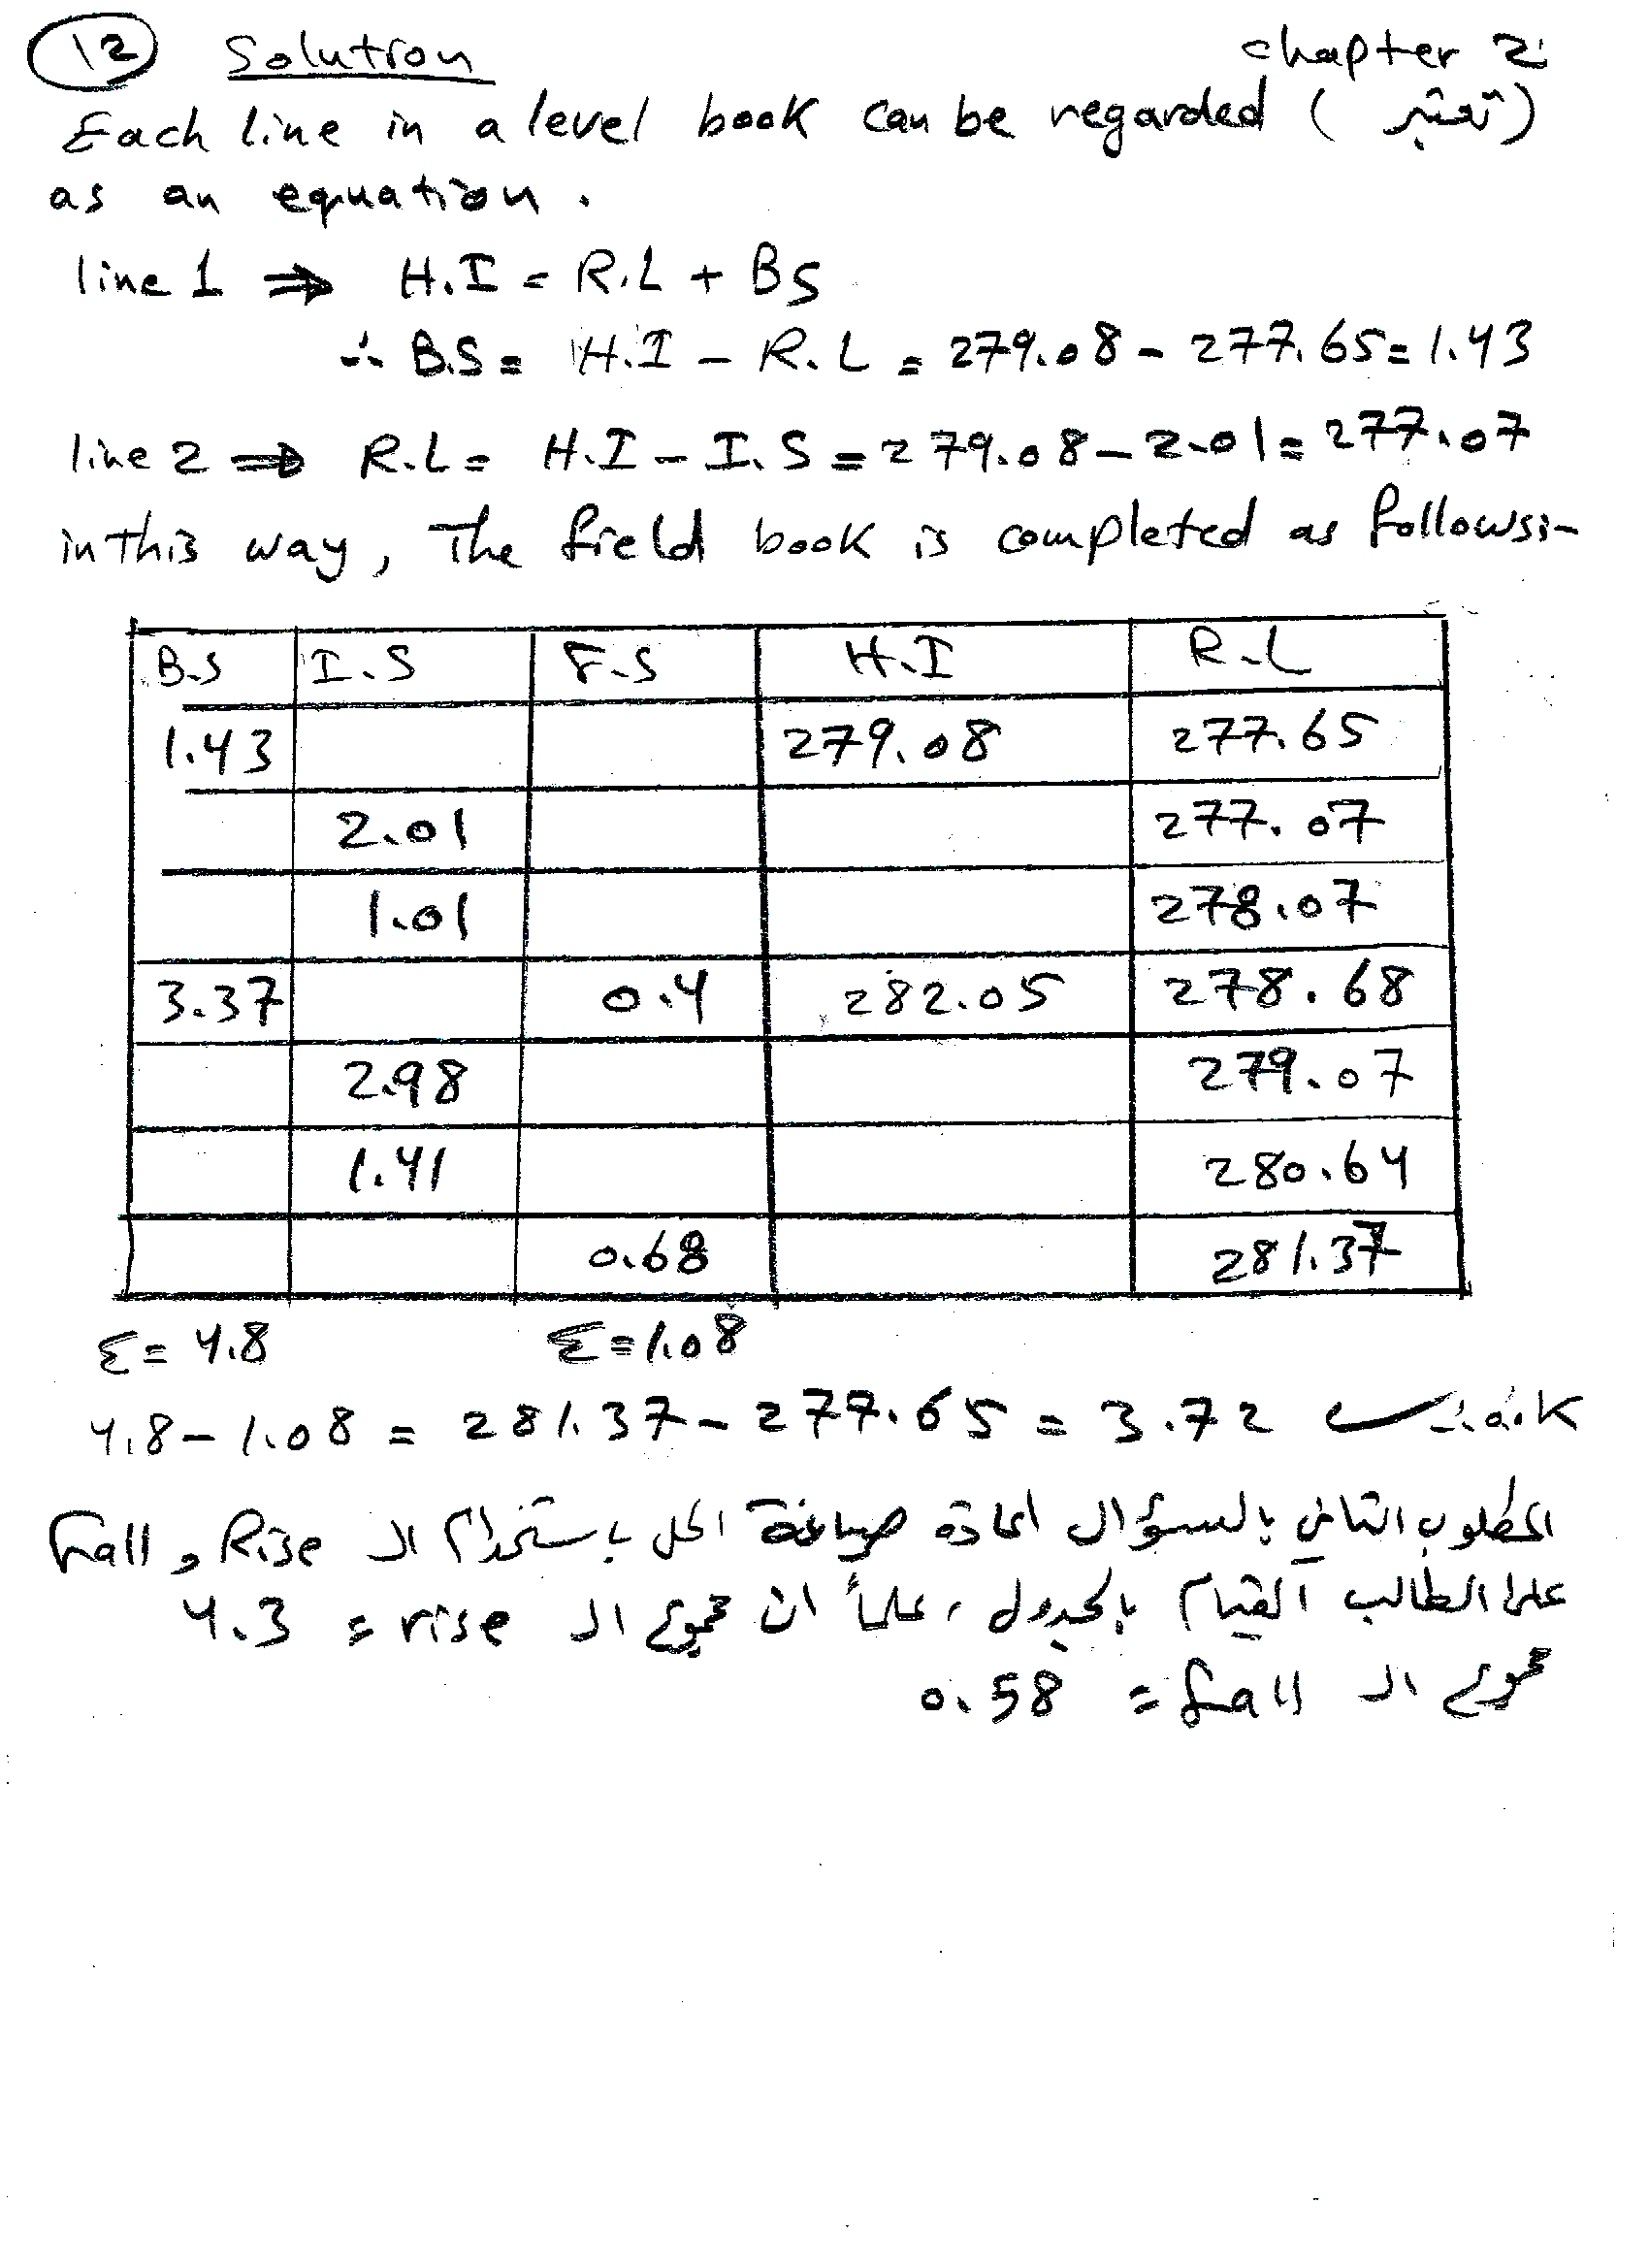 12 Solution chapter 2
Each line in a level book can be regarded (تعتبر)
as an equation.
line 1 ⇒ H.I = R.L + BS
∴ B.S = H.I – R.L = 279.08 – 277.65 = 1.43
line 2 ⇒ R.L = H.I – I.S = 279.08 – 2.01 = 277.07
in this way, The field book is completed as follows:-
B.S I.S F.S H.I R.L
1.43 279.08 277.65
2.01 277.07
1.01 278.07
3.37 0.4 282.05 278.68
2.98 279.07
1.41 280.64
0.68 281.37
Σ = 4.8 Σ = 1.08
4.8 – 1.08 = 281.37 – 277.65 = 3.72 O.K
المطلوب الثاني بالسؤال اعادة صياغة الحل باستخدام الـ Rise و Fall
على الطالب القيام بالجدول، علماً ان مجموع الـ rise = 4.3
مجموع الـ fall = 0.58